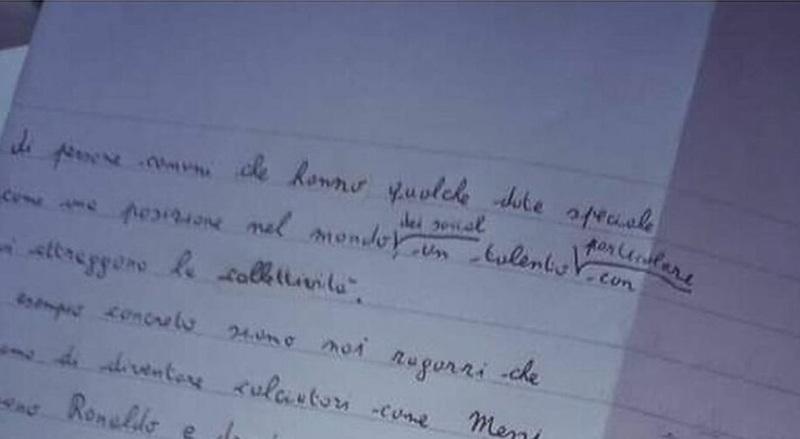 di persone comuni che hanno qualche dote speciale
come una posizione nel mondo dei social, un talento particolare con
attraggono la collettività.
esempio concreto siamo noi ragazzi che
di diventare calciatori come Messi
Ronaldo e